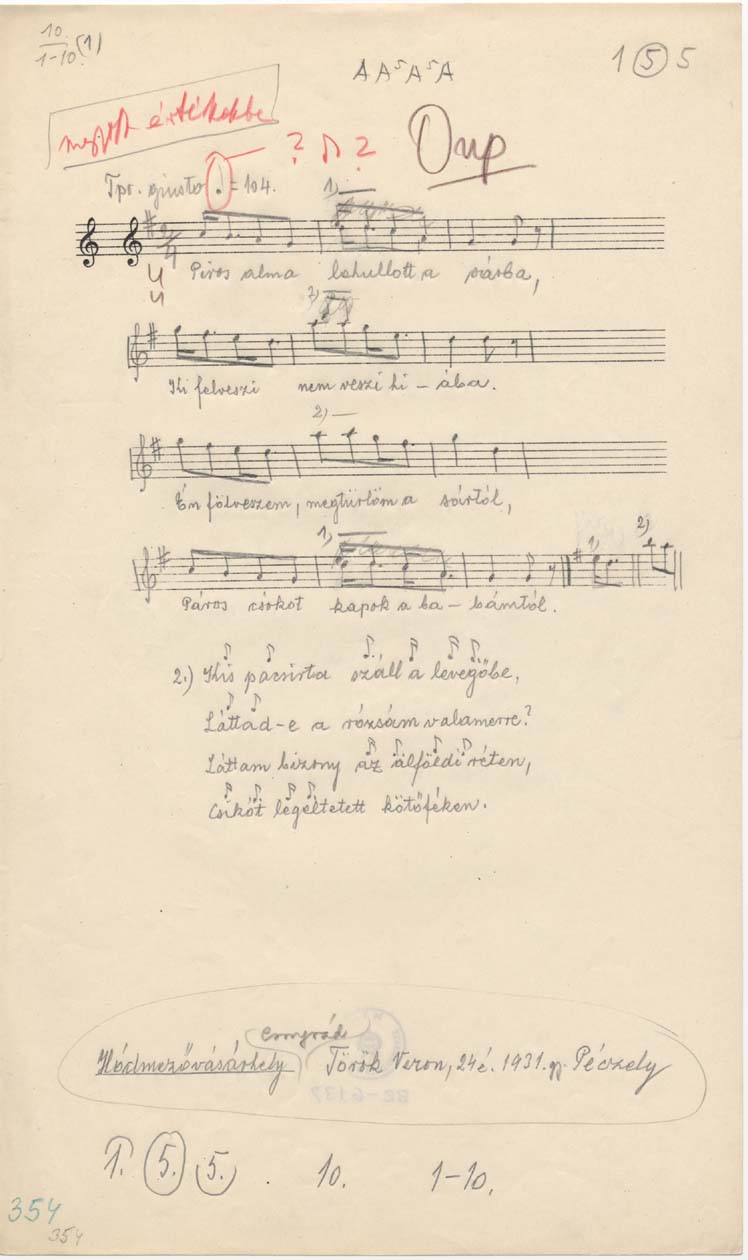 10.
1-10. (1)
A A⁵ A⁵ A
1 (5) 5
megfelt értékekbe
? ♫ ?
Dup
Tpr. giusto ♩. = 104.
1)
2/4
Piros alma lehullott a sárba,
2)
Ki felveszi nem veszi hi - ába.
2)
Én fölveszem, megtürlöm a sártól,
1)
1) 2)
Páros csókot kapok a ba - bámtól.
2.) Kis pacsirta száll a levegőbe,
Láttad-e a rózsám valamerre?
Láttam bizony az alföldi réten,
Csikót legeltetett kötőféken.
Csongrád
Hódmezővásárhely Török Veron, 24 é. 1931. gy. Péczely
BR-6137
1. (5.) 5. 10. 1-10.
354
354